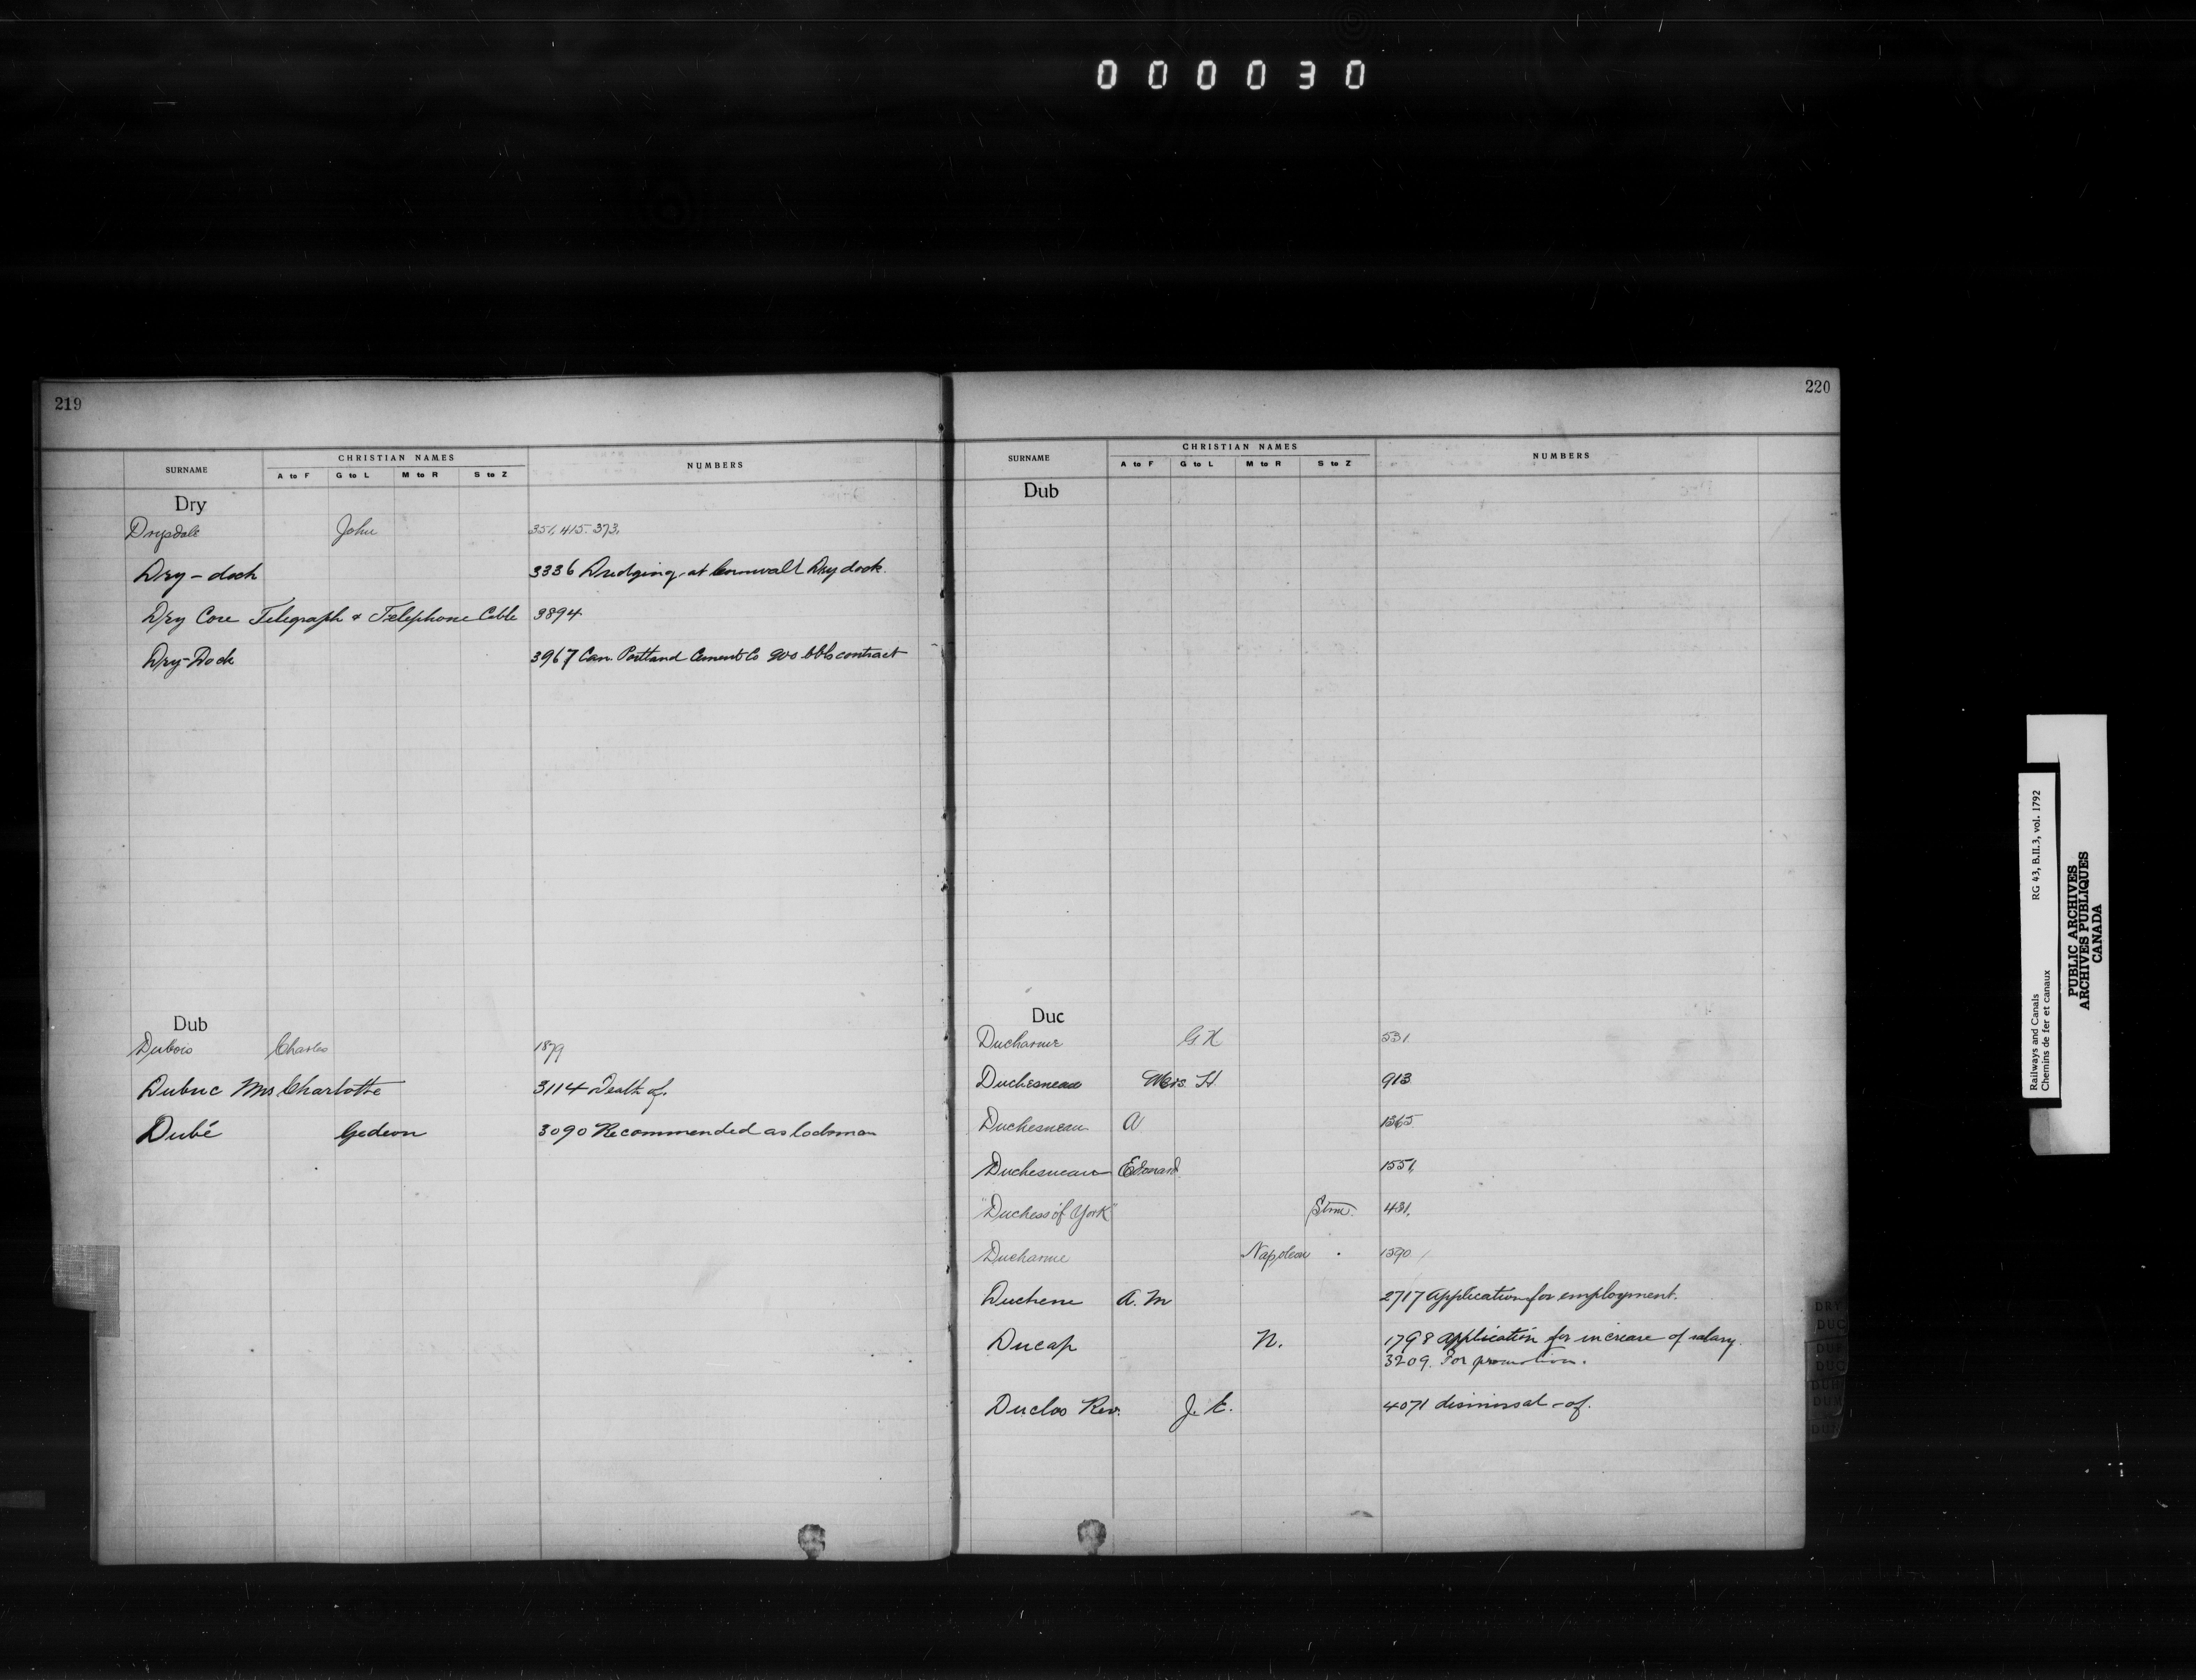 000030
219
SURNAME CHRISTIAN NAMES NUMBERS
A to F G to L M to R S to Z
Dry
Drysdale John 351, 415. 373.
Dry-dock 3336 Dredging at Cornwall Dry dock
Dry Core Telegraph & Telephone Cable 3894
Dry-Dock 3967 Can. Portland Cement Co 900 bbls contract
Dub
Dubois Charles 1879
Dubuc Mrs Charlotte 3114 Death of.
Dubé Gedeon 3090 Recommended as lockman
220
SURNAME CHRISTIAN NAMES NUMBERS
A to F G to L M to R S to Z
Dub
Duc
Ducharme G. 531.
Duchesneau Mrs. H 913
Duchesneau A 1365.
Duchesneau Edouard 1551.
"Duchess of York" Stmr. 431.
Ducharme Napoleon 1590
Duchene A. M 2717 Application for employment.
Ducap N. 1798 Application for increase of salary.
3209. For promotion.
Duclos Rev. J. E. 4071 dismissal - of.
DRY
DUC
DUB
DUC
Railways and Canals RG 43, B.II.3, vol. 1792
Chemins de fer et canaux
PUBLIC ARCHIVES
ARCHIVES PUBLIQUES
CANADA